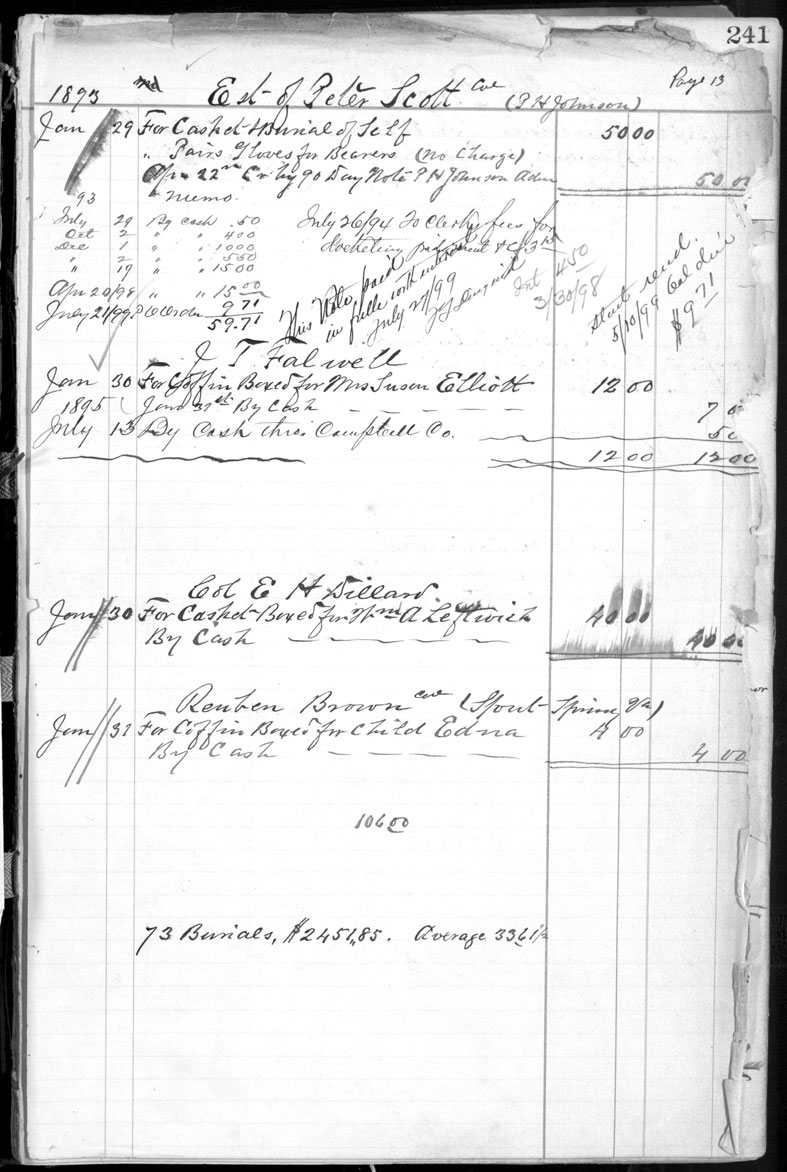 241
Page 13
1893 Est of Peter Scott Col (P H Johnson)
Jan 29 For Casket & Burial of Self 50 00
" Pairs Gloves for Bearers (no Charge)
Apr 22nd Cr by 90 Day Note P H Johnson Adm 50 00
93 memo.
July 29 By Cash .50 July 26/94 To Clerks fees for
Oct 2 " " 400 Docketing
Dec 1 " " 1000
" 2 " " 550
" 19 " " 1500
Apr 20/98 " " 15.00
July 21/99 P O Order 9 71
59.71
This Note paid
in full with interest
July 27/99
Int 450
3/30/98
Stat rend.
5/10/99 Bal due
$9 71
J T Falwell
Jan 30 For Coffin Boxed for Mrs Susan Elliott 12 00
1895 Jan 31st By Cash 7 0
July 13 By Cash thro Campbell Co. 5 0
12 00 12 00
Col E H Dillard
Jan 30 For Casket Boxed for Wm A Leftwich 40 00
By Cash 40 00
Reuben Brown Col (Spout Spring Va)
Jan 31 For Coffin Boxed for Child Edna 4 00
By Cash 4 00
106 00
73 Burials, $2451,85. Average 33 61/2